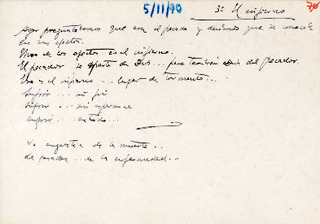 5/11/90 3º El infierno 70
Ayer preguntábamos que era el pecado y decíamos que se conocía
por sus efectos.
Uno de los efectos es el infierno.
El pecador se aparta de Dios... pero también Dios del pecador.
Eso es el infierno... lugar de tormento...
Sufrir... sin fin
Sufrir... sin esperanza
Sufrir... en todo...
La angustia de la muerte...
de pecador... de la enfermedad...